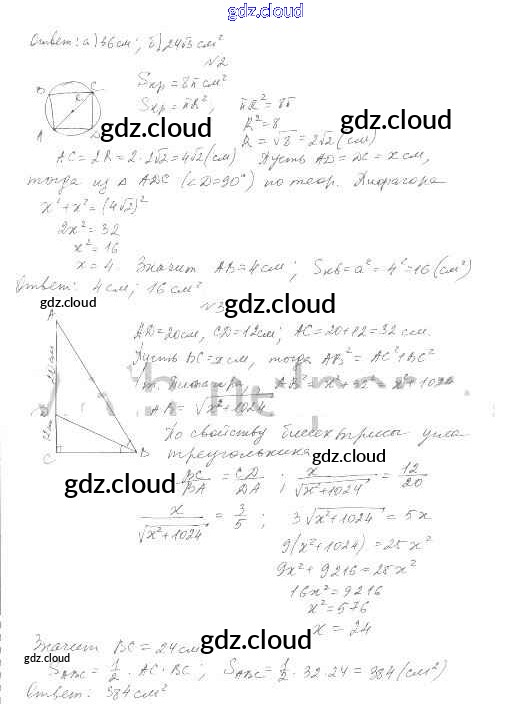 gdz.cloud
Ответ: а) 36 см; б) 24√3 см²
№2
Sкр = 8π см²
Sкр = πR²; πR² = 8π
R² = 8
gdz.cloud gdz.cloud
R = √8 = 2√2 (см)
AC = 2R = 2·2√2 = 4√2 (см) Пусть AD = DC = x см,
тогда из △ ADC (∠D = 90°) по теор. Пифагора
x² + x² = (4√2)²
2x² = 32
x² = 16
gdz.cloud gdz.cloud
x = 4. Значит AB = 4 см; Sкв = a² = 4² = 16 (см²)
Ответ: 4 см; 16 см²
№3
gdz.cloud
A
AD = 20 см, CD = 12 см; AC = 20 + 12 = 32 см.
Пусть BC = x см, тогда AB² = AC² + BC²
Пифагора AB² = x² + 32² x² + 1024
AB = √x²+1024
По свойству биссектрисы угла
треугольника
C B
gdz.cloud gdz.cloud
BC/BA = CD/DA; x/√x²+1024 = 12/20
x/√x²+1024 = 3/5; 3√x²+1024 = 5x
9(x²+1024) = 25x²
9x² + 9216 = 25x²
16x² = 9216
x² = 576
x = 24
gdz.cloud
Значит BC = 24 см
gdz.cloud
SABC = 1/2 · AC · BC; SABC = 1/2 · 32 · 24 = 384 (см²)
Ответ: 384 см²
gdz.cloud gdz.cloud